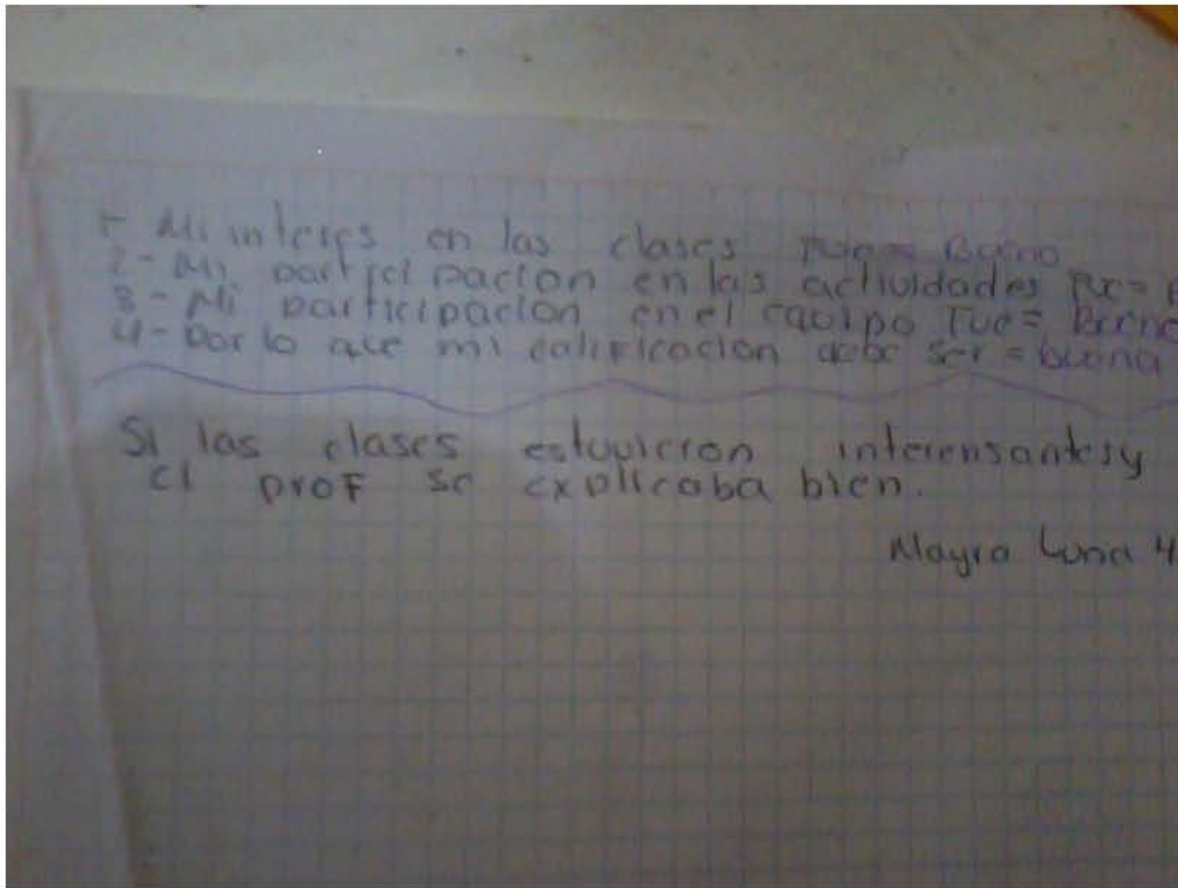 1- Mi interes en las clases Fue= Bueno
2- Mi participacion en las actividades Fue=
3- Mi participacion en el equipo Fue= Bueno
4- Por lo que mi calificacion debe ser = buena
Si las clases estuvieron interensantes y
el prof se explicaba bien.
Mayra Luna 4